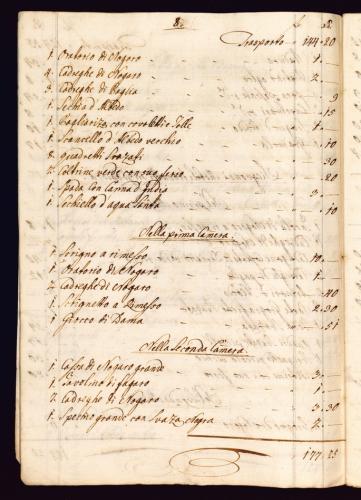 8.
Trasporto 144-20
1. Oratorio di Nogaro 1.-
4. Cadreghe di Nogaro 2.-
3. Cadreghe di Paglia
1. Sechia d'Albedo 9
1. Pagliarizo con cavaletti e Tolle 15
1. Scancello d'Albedo vecchio 1.10
8. quadretti Soazati 30
2. Coltrine verde con suo ferio 20
1. Spada con Canna d'India 3.-
1. Sechiello d'aqua Santa .10
Nella prima Camera.
1. Scrigno a rimesso 10.-
1. Oratorio di Nogaro 1.-
2. Cadreghe di Nogaro .40
1. Scrignetto a Rimesso 2.30
1. Giocco di Dama -.51
Nella Seconda Camera.
1. Cassa di Nogaro grande 3.-
1. Tavolino di fagaro 1.
2. Cadreghe di Nogaro 3.30
1. Spechio grande con Svaza Negra 2.-
177 25